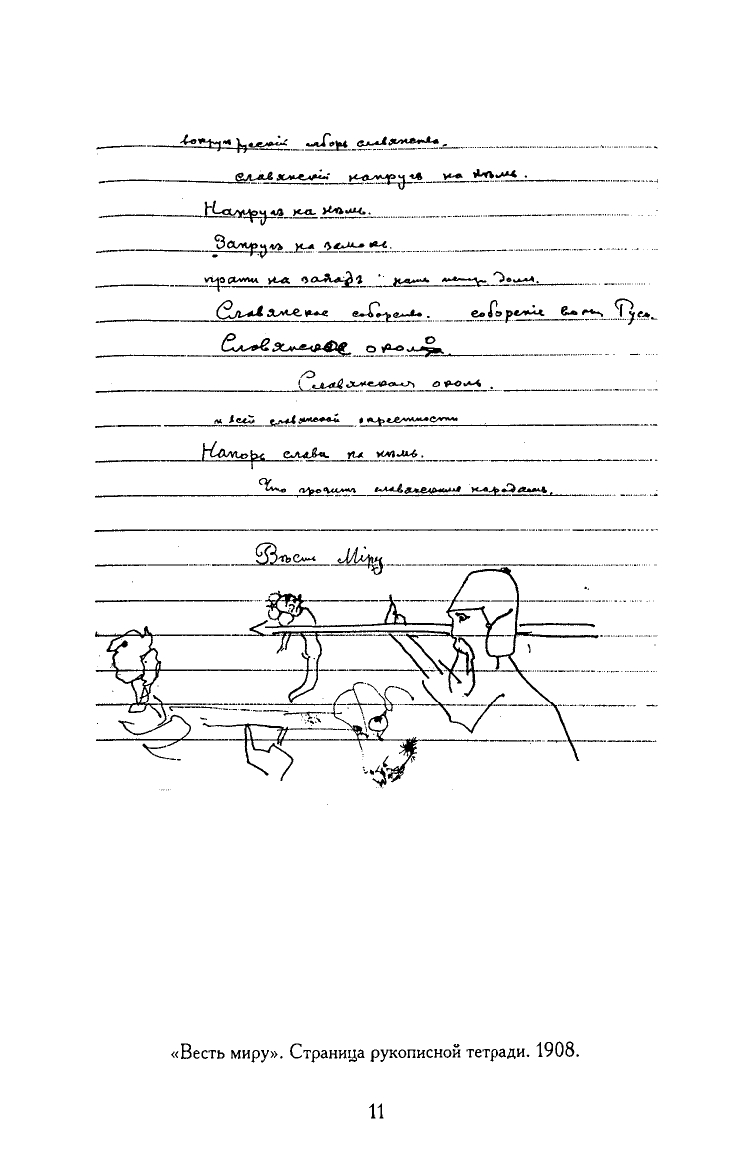 вокругрусскій сборъ славянства.
славянскій напругъ на нѣмь.
Напругъ на нѣмь.
Запругъ на замокъ.
прати на западъ нашъ долгъ.
Славянское соборство. соборенiе Русь.
Славянское около
Славянская околь.
и всей славянской окрестности
Напоръ слава на нѣмь.
Что грозитъ славянскимъ народамъ.
Вѣсть Мiру
«Весть миру». Страница рукописной тетради. 1908.
11